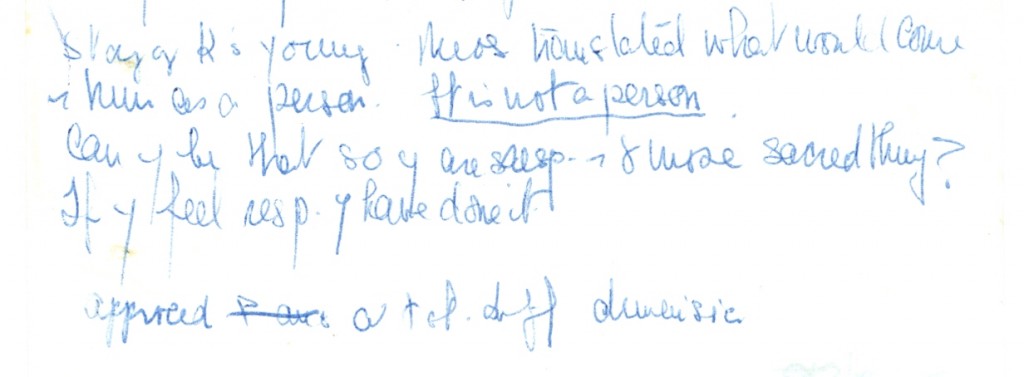 K's young Theos translated what would come
him as a person. It is not a person
Can y be that so y are resp. & more sacred thing?
If y feel resp. y have done it
a tot. diff dimension